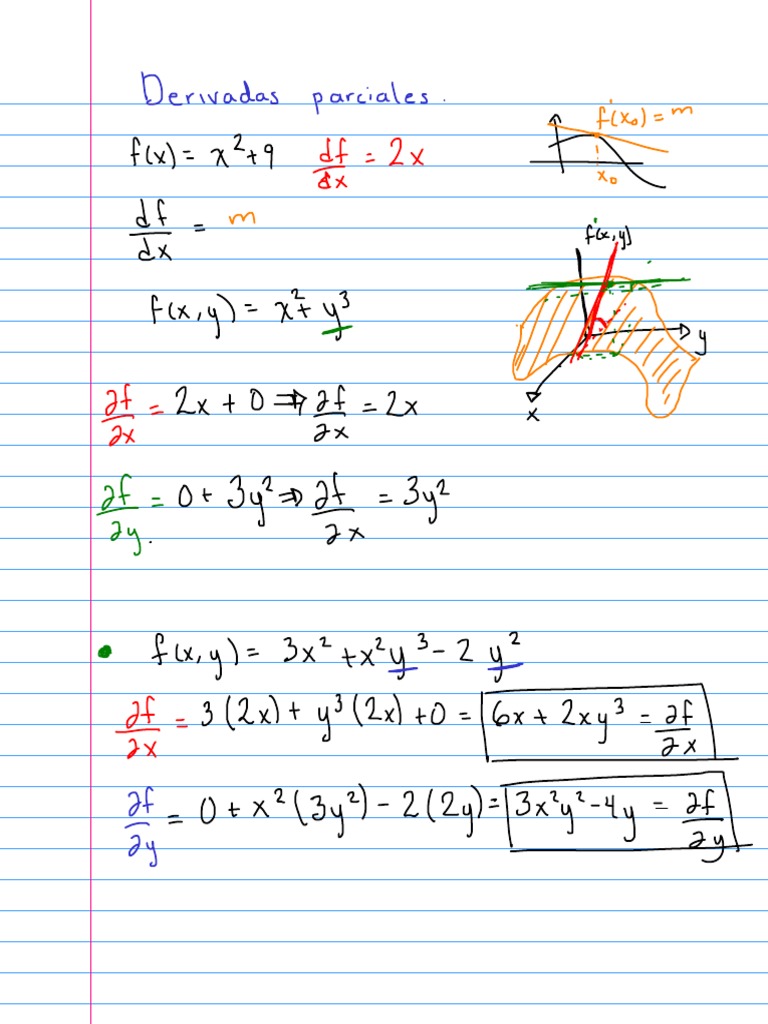 Derivadas parciales.
f'(x₀) = m
x₀
f(x) = x² + 9 df/dx = 2x
df/dx = m
f'(x,y)
y
x
f(x,y) = x² + y³
∂f/∂x = 2x + 0 ⇒ ∂f/∂x = 2x
∂f/∂y = 0 + 3y² ⇒ ∂f/∂x = 3y²
• f(x,y) = 3x² + x²y³ - 2 y²
∂f/∂x = 3(2x) + y³(2x) + 0 = 6x + 2xy³ = ∂f/∂x
∂f/∂y = 0 + x²(3y²) - 2(2y) = 3x²y² - 4y = ∂f/∂y